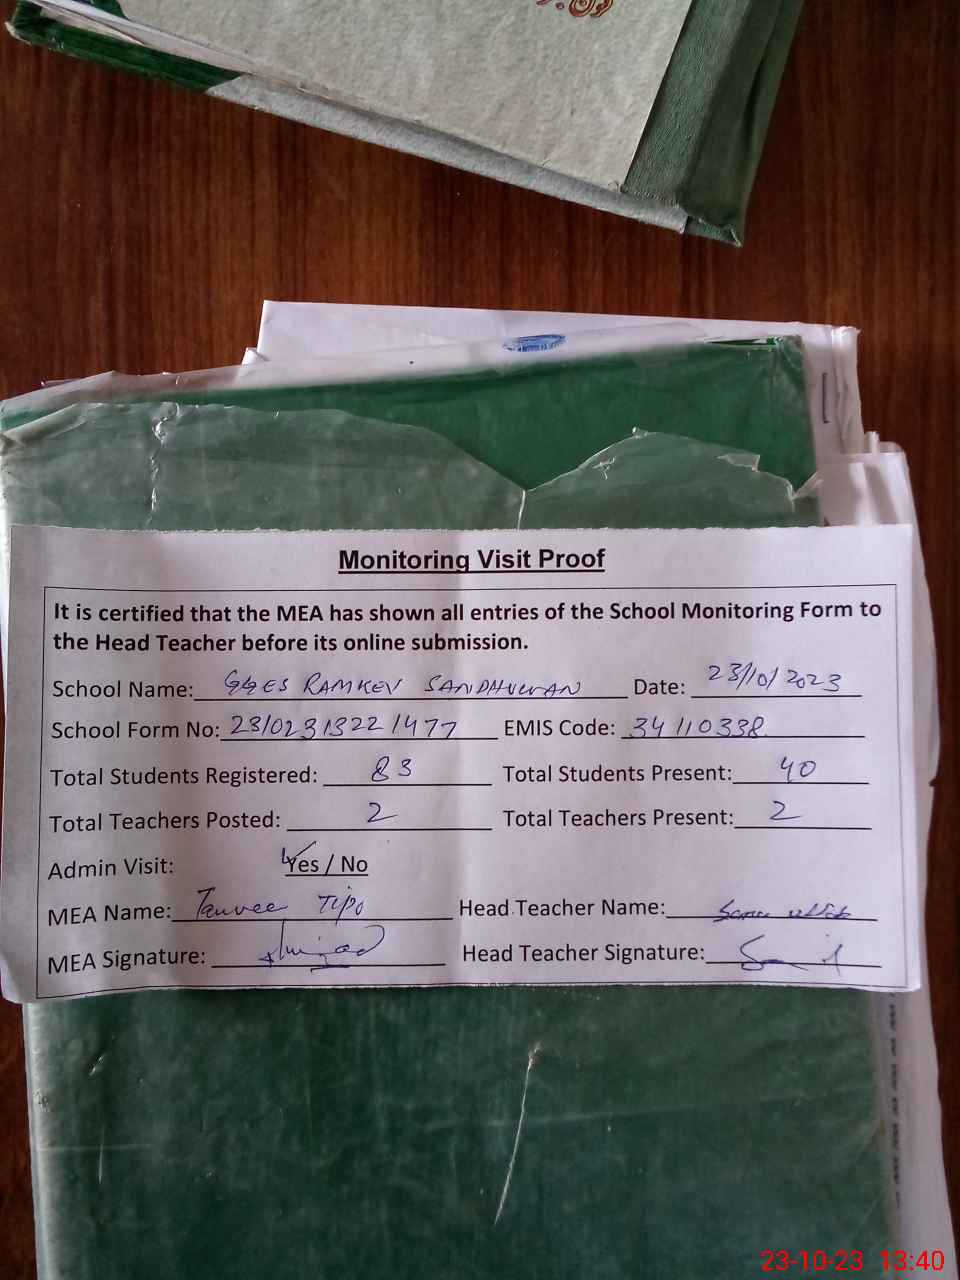 Monitoring Visit Proof
It is certified that the MEA has shown all entries of the School Monitoring Form to
the Head Teacher before its online submission.
School Name: GGES RAMKEV SANDHUWAN Date: 23/10/2023
School Form No: 23/02313221477 EMIS Code: 34110338
Total Students Registered: 83 Total Students Present: 40
Total Teachers Posted: 2 Total Teachers Present: 2
Admin Visit: Yes / No
MEA Name: Tanvee Tipo Head Teacher Name:
MEA Signature: Head Teacher Signature:
23-10-23 13:40